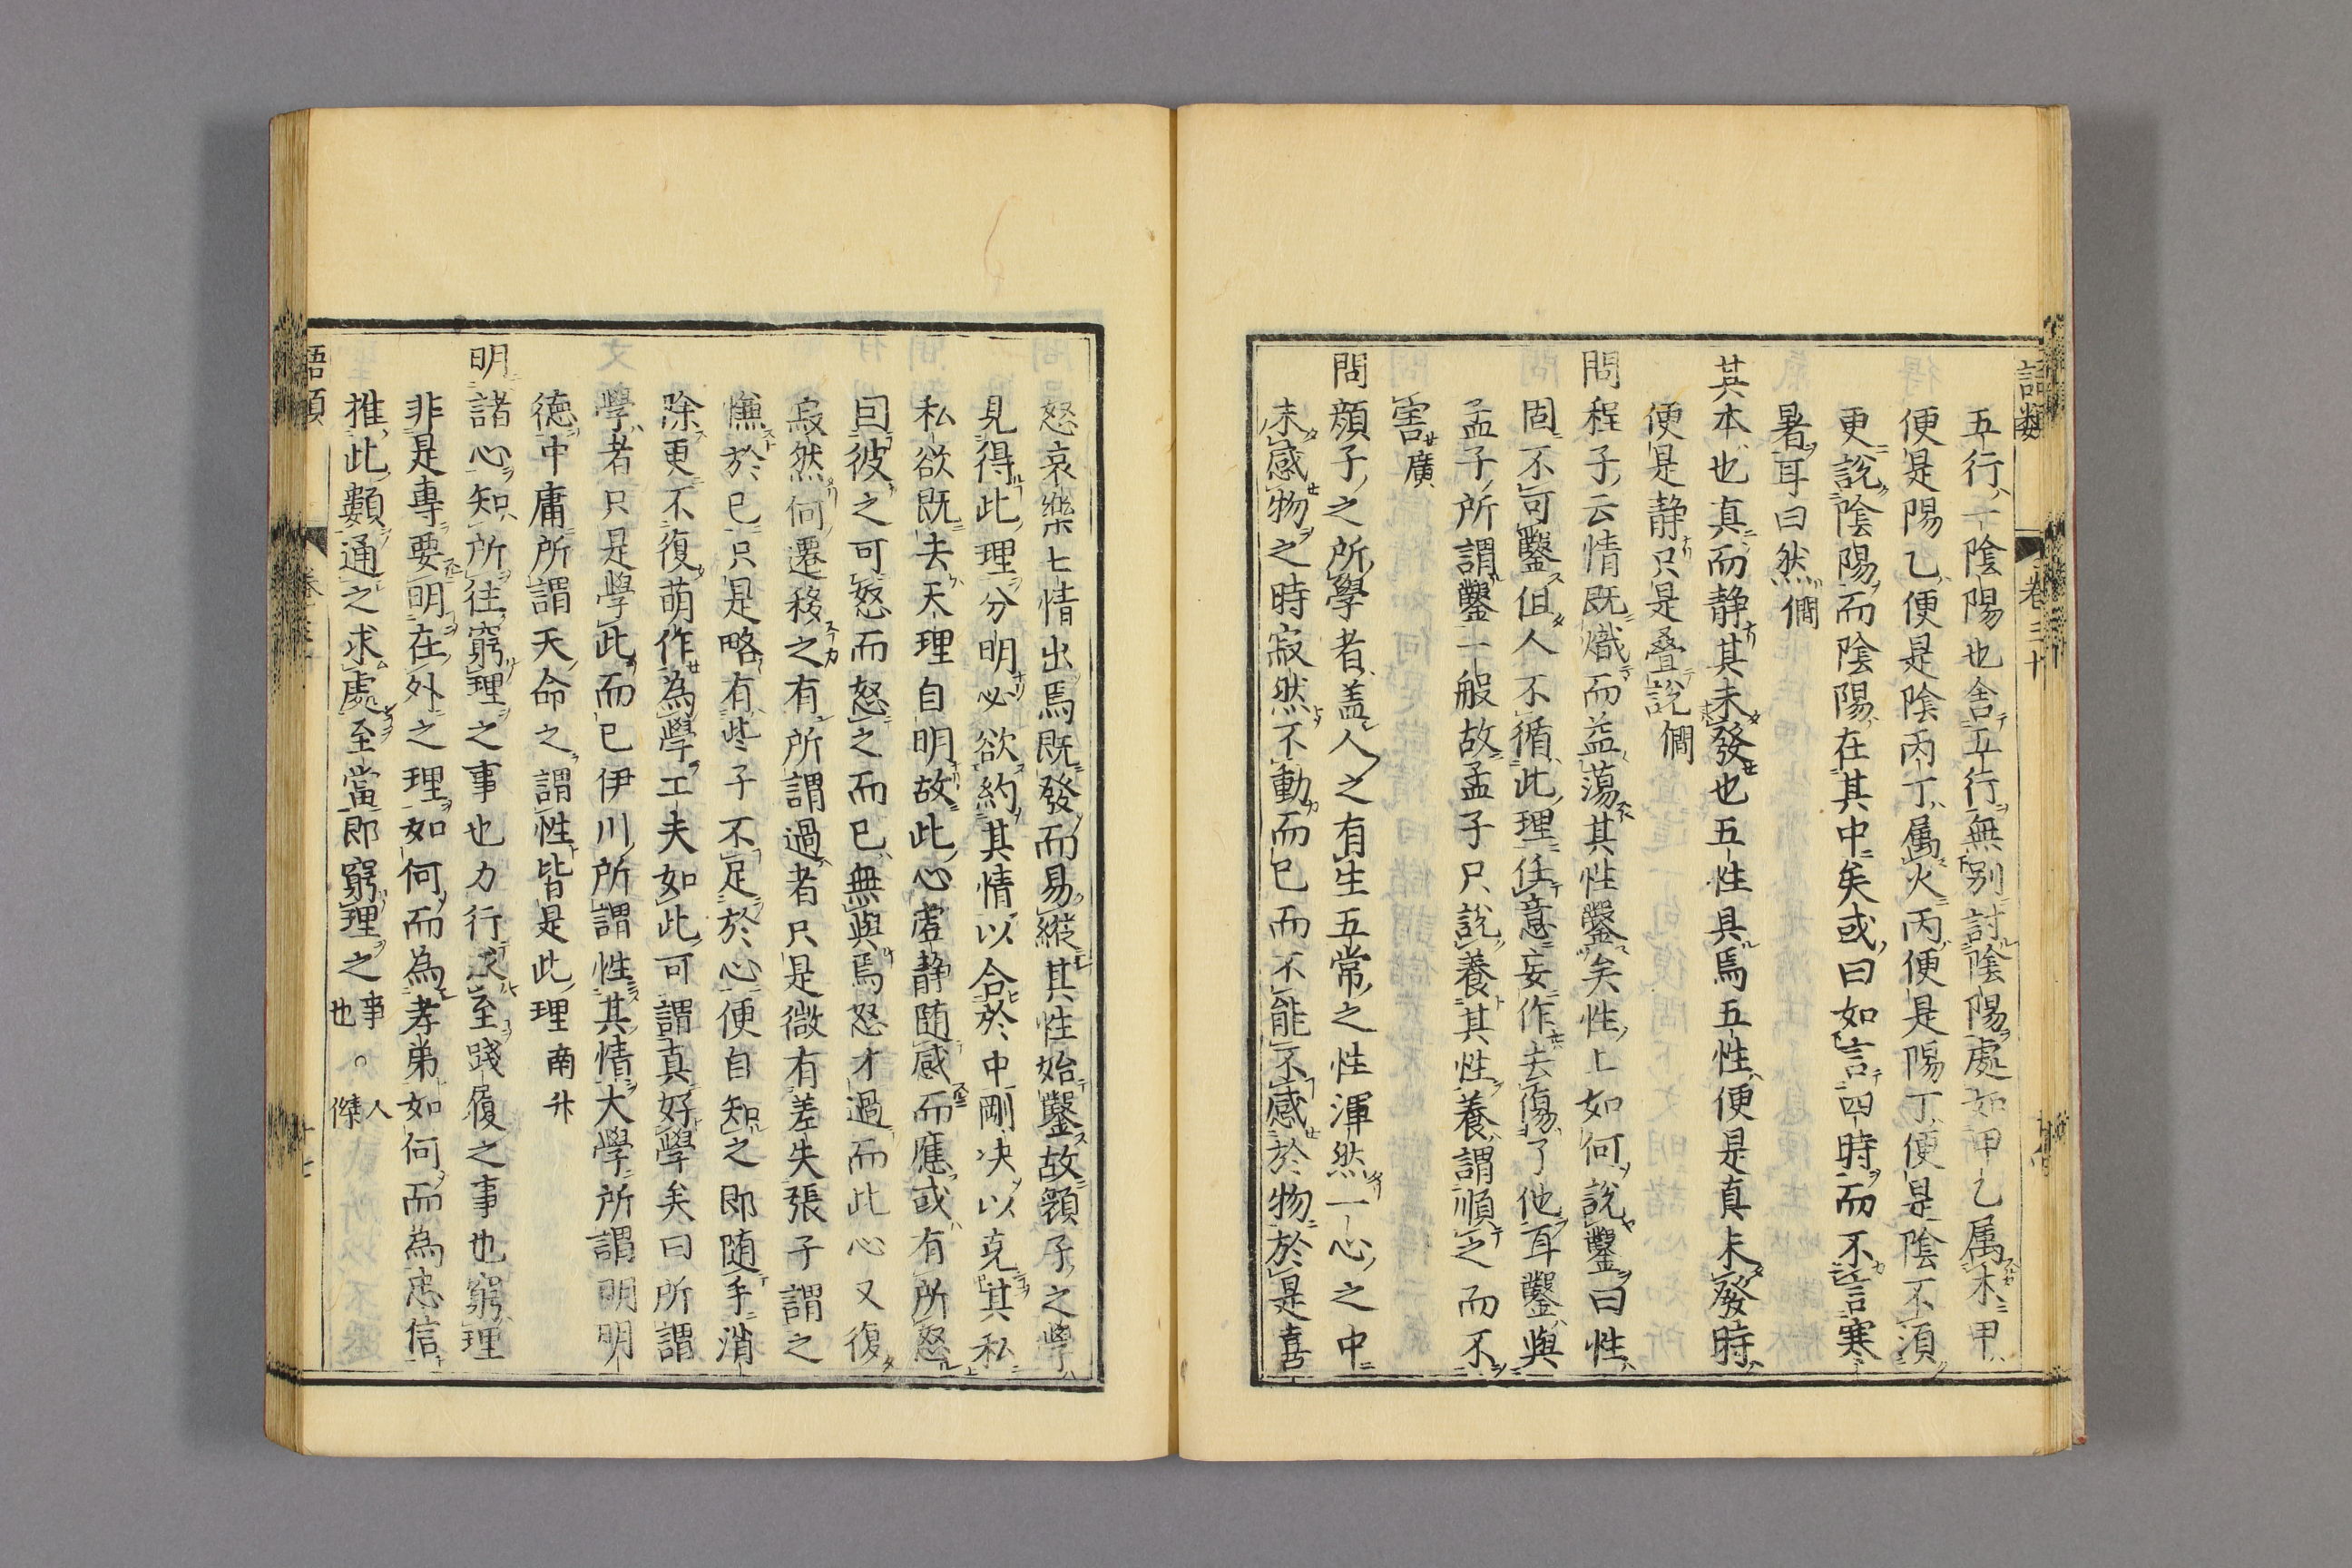 語類 卷三十
五行一陰陽也舎五行無別討陰陽處如甲乙属木甲
便是陽乙便是陰丙丁属火丙便是陽丁便是陰不須
更說陰陽而陰陽在其中矣或曰如言四時而不言寒
暑耳曰然僩
其本也真而静其未發也五性具焉五性便是真未發時
便是静只是疊說僩
問程子云情既熾而益蕩其性鑿矣性上如何說鑿曰性
固不可鑿但人不循此理任意妄作去傷了他耳鑿與
孟子所謂鑿一般故孟子只說養其性養謂順之而不
害廣
問顔子之所學者盖人之有生五常之性渾然一心之中
未感物之時寂然不動而已而不能不感於物於是喜
怒哀樂七情出焉既發而易縱其性始鑿故顔子之學
見得此理分明必欲約其情以合於中剛决以克其私
私欲既去天理自明故此心虚静随感而應或有所怒
因彼之可怒而怒之而已無與焉怒才過而此心又復
寂然何遷移之有所謂過者只是微有差失張子謂之
慊於已只是略有些子不足於心便自知之即随手消
除更不復萌作為學工夫如此可謂真好學矣曰所謂
學者只是學此而已伊川所謂性其情大學所謂明明
德中庸所謂天命之謂性皆是此理南升
明諸心知所往窮理之事也力行求至踐履之事也窮理
非是專要明在外之理如何而為孝弟如何而為忠信
推此類通之求處至當即窮理之事也。人傑
語類 卷三十